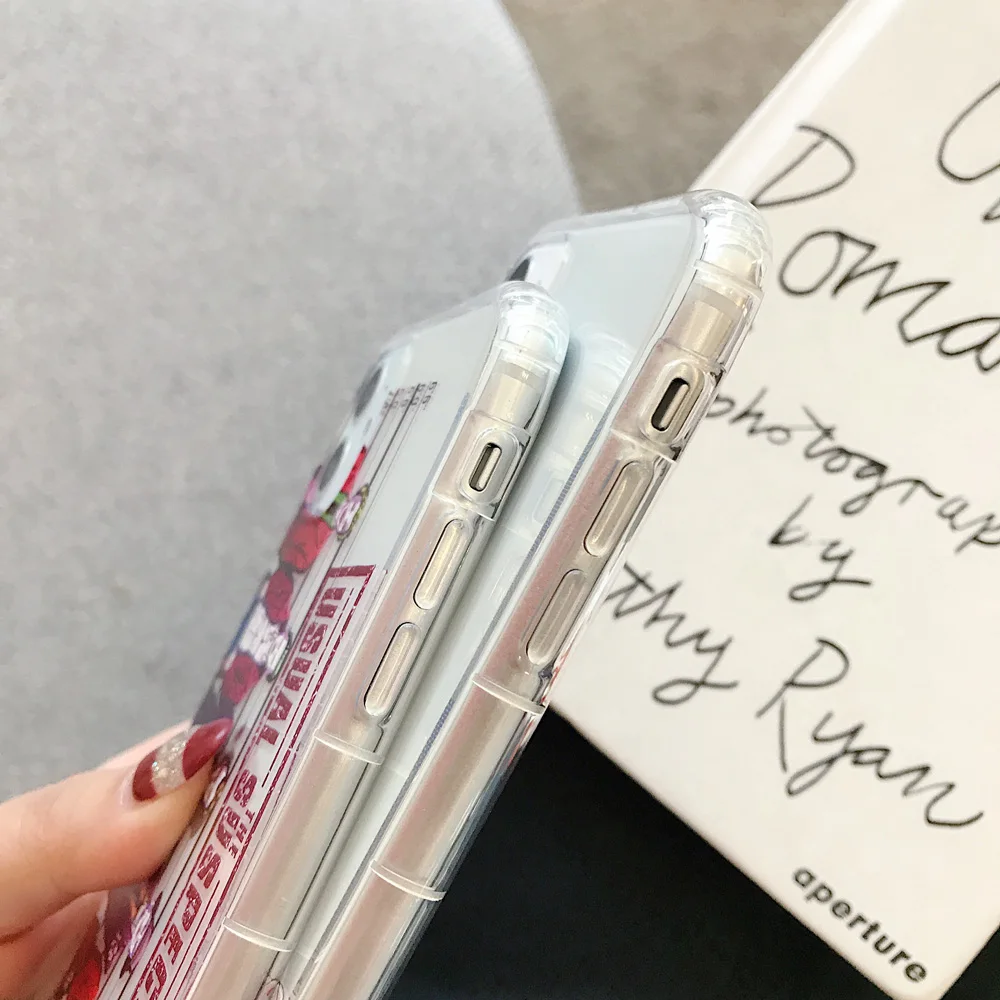 Dona
photograp
by
thy Ryan
aperture
USUAL
THE
SUSPEC